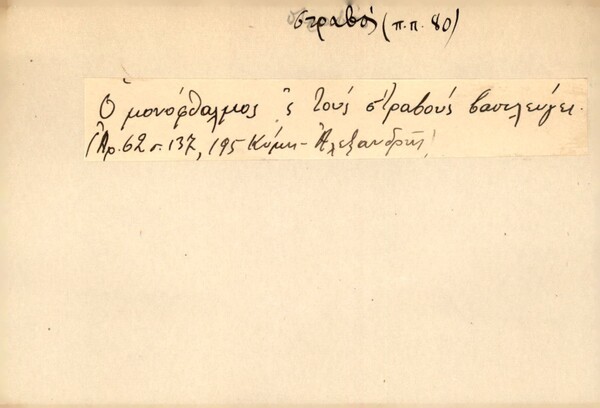 στραβός (π.π. 80)
Ὁ μονόφθαλμος 'ς τούς στραβούς βασιλεύγει.
(Ἀρ. 62 σ. 137, 195 Κύμη - Ἀλεξανδρῆς)